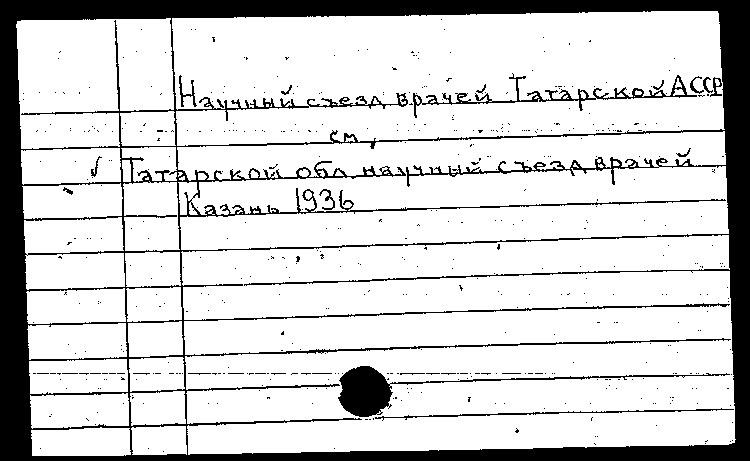 Научный съезд врачей Татарской АССР
см,
√ Татарской обл научный съезд врачей
Казань 1936